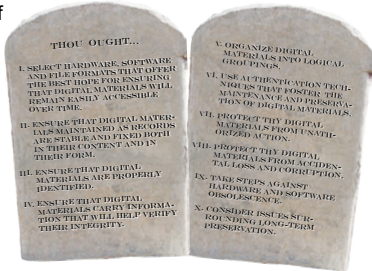 f
THOU OUGHT...
I. SELECT HARDWARE, SOFTWARE
AND FILE FORMATS THAT OFFER
THE BEST HOPE FOR ENSURING
THAT DIGITAL MATERIALS WILL
REMAIN EASILY ACCESSIBLE
OVER TIME.
II. ENSURE THAT DIGITAL MATER-
IALS MAINTAINED AS RECORDS
ARE STABLE AND FIXED BOTH
IN THEIR CONTENT AND IN
THEIR FORM.
III. ENSURE THAT DIGITAL
MATERIALS ARE PROPERLY
IDENTIFIED.
IV. ENSURE THAT DIGITAL
MATERIALS CARRY INFORMA-
TION THAT WILL HELP VERIFY
THEIR INTEGRITY.
V. ORGANIZE DIGITAL
MATERIALS INTO LOGICAL
GROUPINGS.
VI. USE AUTHENTICATION TECH-
NIQUES THAT FOSTER THE
MAINTENANCE AND PRESERVA-
TION OF DIGITAL MATERIALS.
VII. PROTECT THY DIGITAL
MATERIALS FROM UNAUTH-
ORIZED ACTION.
VIII. PROTECT THY DIGITAL
MATERIALS FROM ACCIDEN-
TAL LOSS AND CORRUPTION.
IX. TAKE STEPS AGAINST
HARDWARE AND SOFTWARE
OBSOLESCENCE.
X. CONSIDER ISSUES SUR-
ROUNDING LONG-TERM
PRESERVATION.